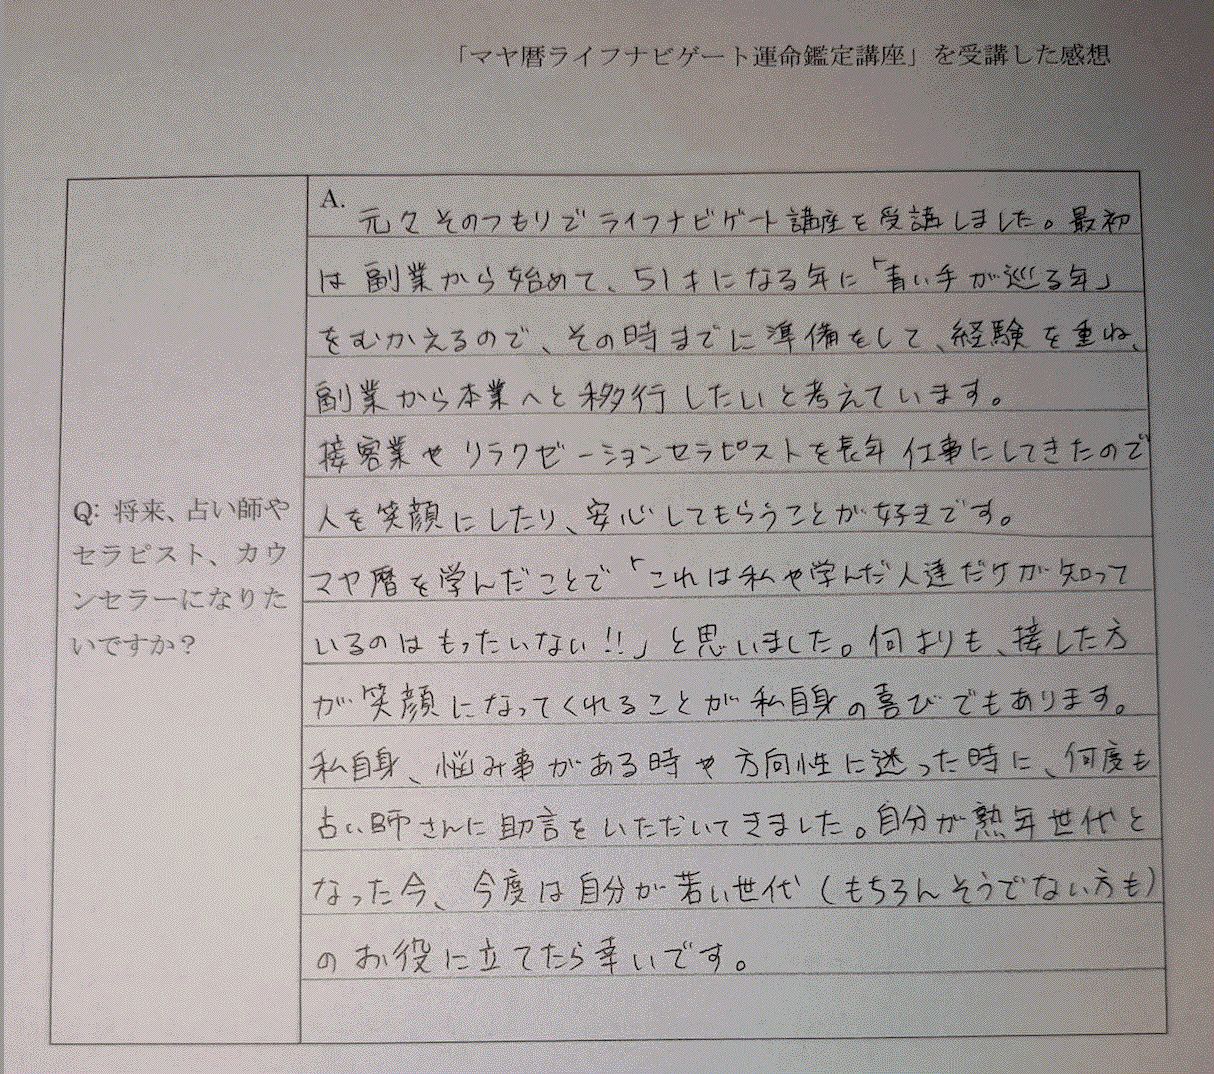 「マヤ暦ライフナビゲート運命鑑定講座」を受講した感想
Q: 将来、占い師や
セラピスト、カウ
ンセラーになりた
いですか？
A.
元々そのつもりでライフナビゲート講座を受講しました。最初
は副業から始めて、51才になる年に「青い手が巡る年」
をむかえるので、その時までに準備をして、経験を重ね、
副業から本業へと移行したいと考えています。
接客業やリラクゼーションセラピストを長年仕事にしてきたので
人を笑顔にしたり、安心してもらうことが好きです。
マヤ暦を学んだことで「これは私や学んだ人達だけが知って
いるのはもったいない!!」と思いました。何よりも、接した方
が笑顔になってくれることが私自身の喜びでもあります。
私自身、悩み事がある時や方向性に迷った時に、何度も
占い師さんに助言をいただいてきました。自分が熟年世代と
なった今、今度は自分が若い世代（もちろんそうでない方も）
のお役に立てたら幸いです。